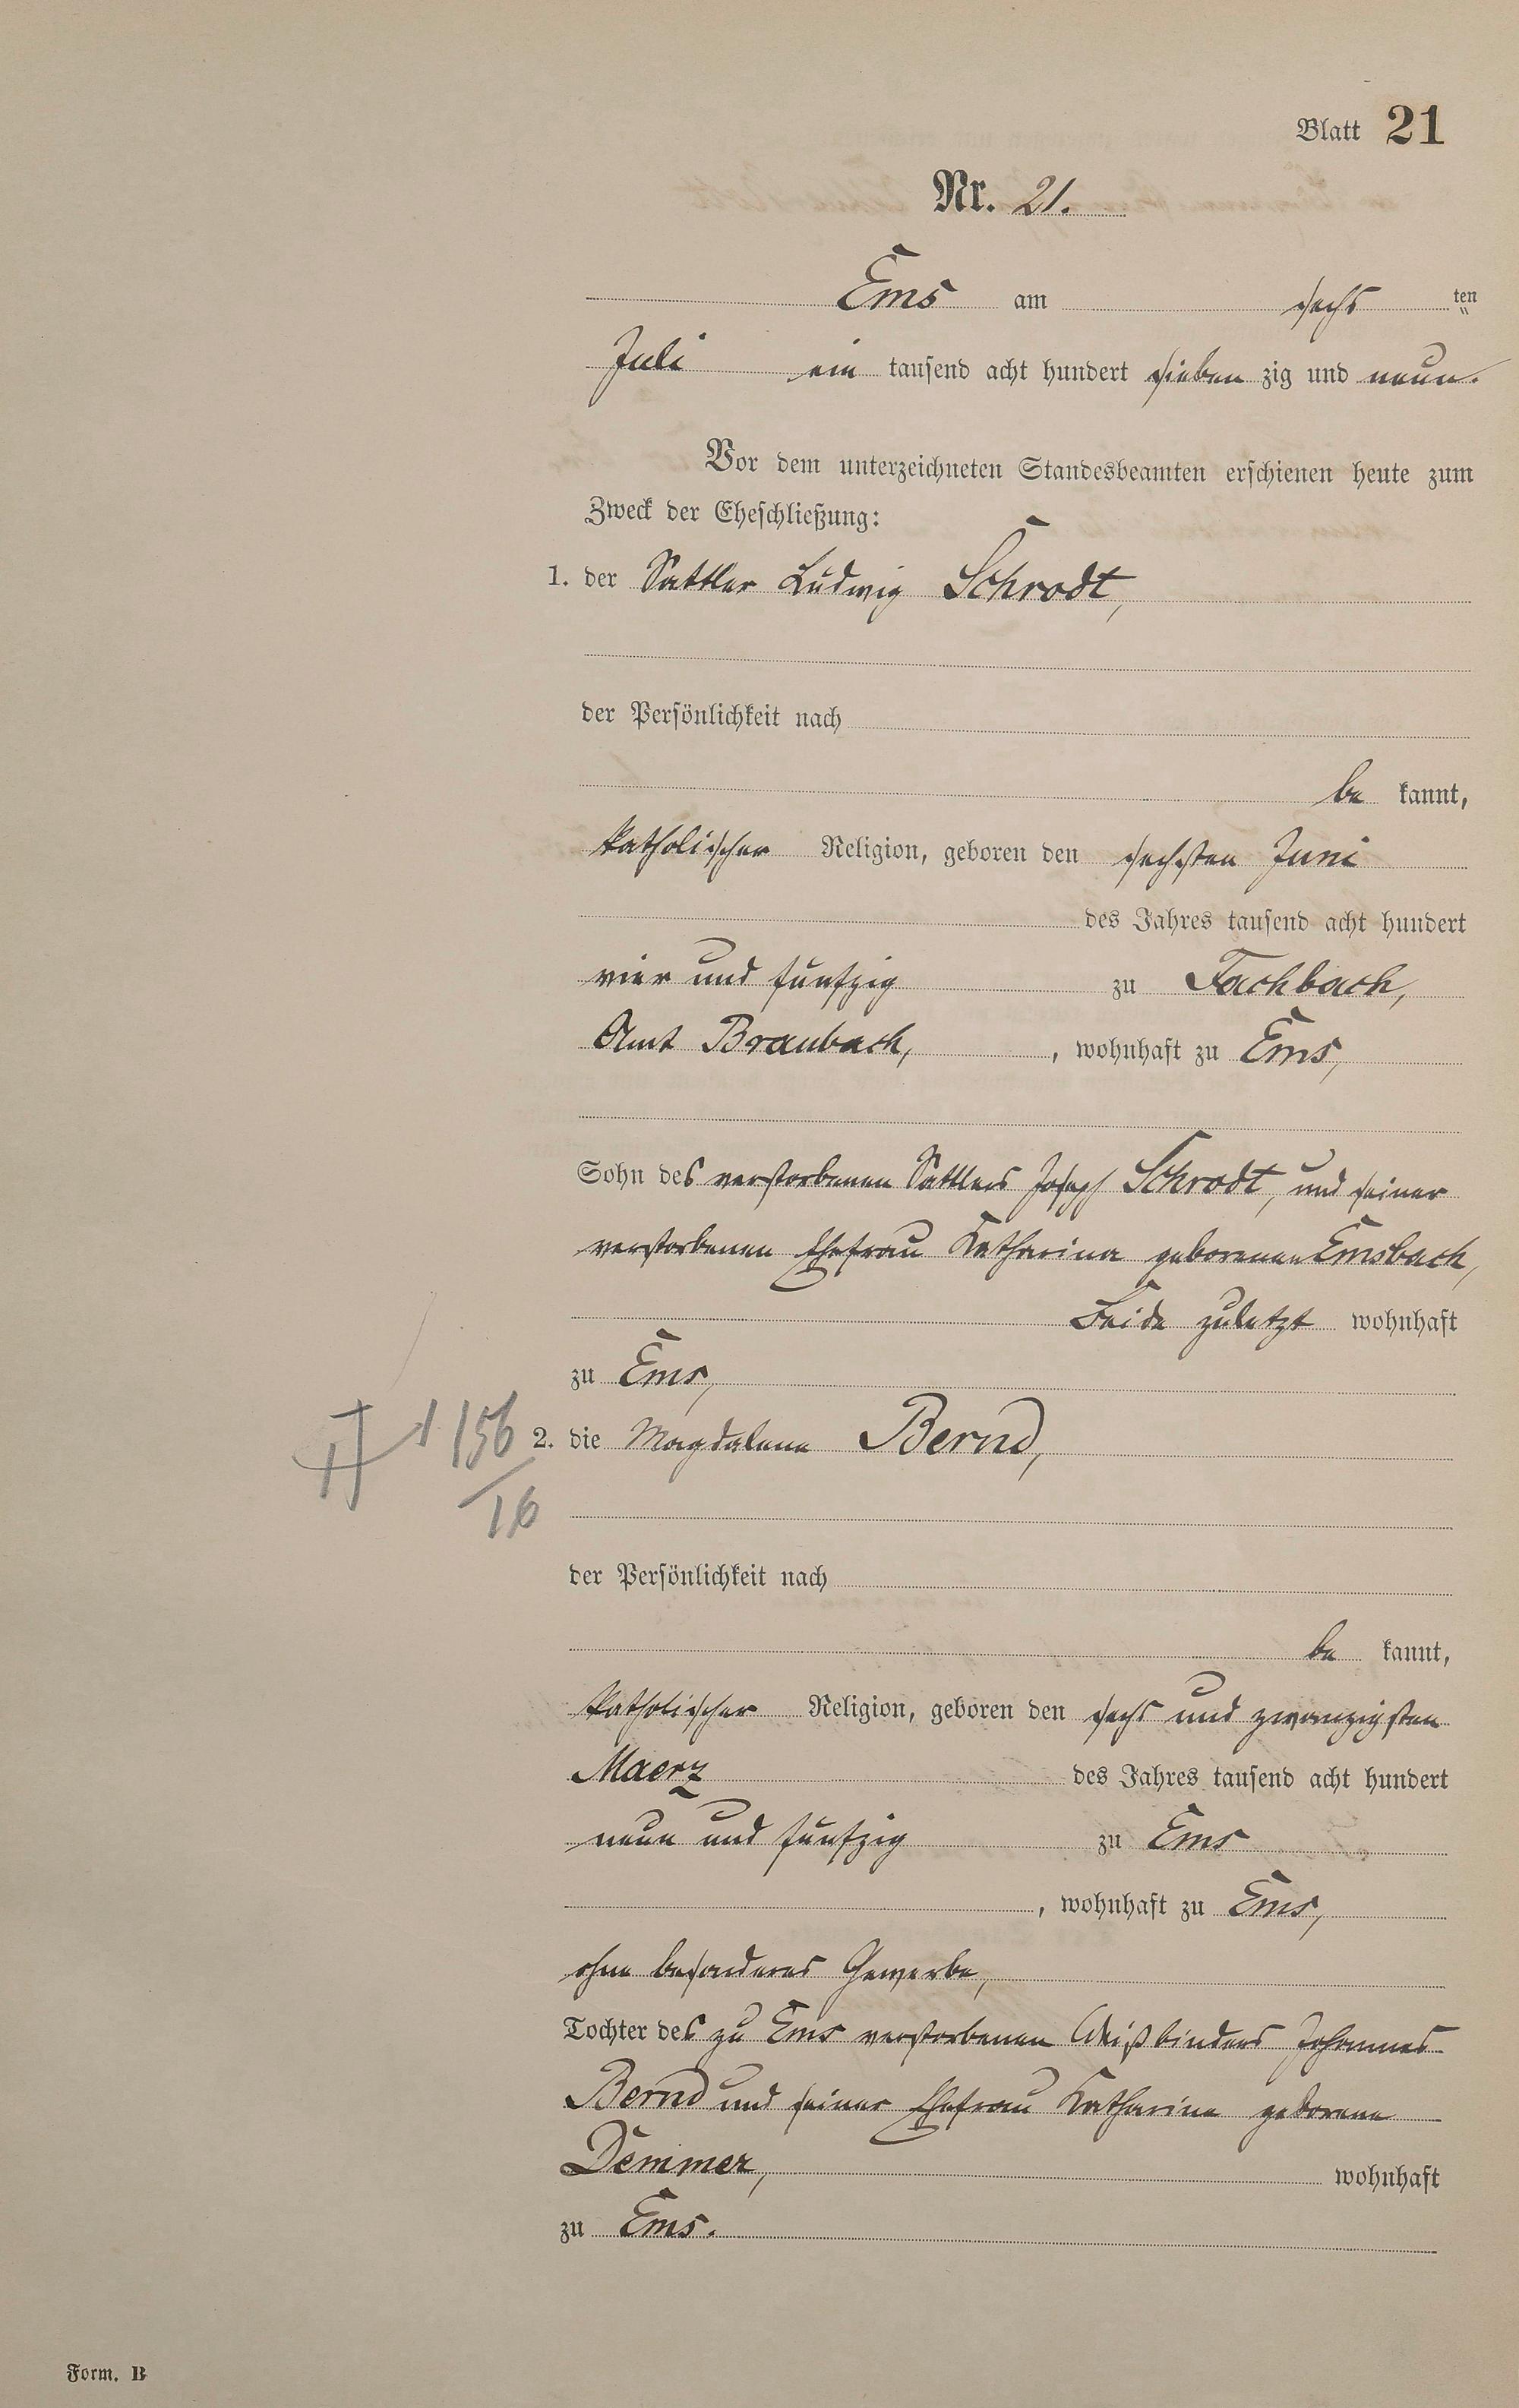 Blatt 21
Nr. 21.
Ems am sechs ten
Juli ein tausend acht hundert sieben zig und neun.
Vor dem unterzeichneten Standesbeamten erschienen heute zum
Zweck der Eheschließung:
1. der Sattler Ludwig Schrodt,
der Persönlichkeit nach
be kannt,
katholischer Religion, geboren den sechsten Juni
des Jahres tausend acht hundert
vier und fünfzig zu Fachbach,
Amt Braubach, , wohnhaft zu Ems,
Sohn des verstorbenen Sattlers Joseph Schrodt, und seiner
verstorbenen Ehefrau Katharina geborenen Emsbach,
Beide zuletzt wohnhaft
zu Ems,
2. die Magdalena Bernd,
156
/16
der Persönlichkeit nach
be kannt,
katholischer Religion, geboren den sechs und zwanzigsten
Maerz des Jahres tausend acht hundert
neun und fünfzig zu Ems
, wohnhaft zu Ems,
ohne besonderes Gewerbe,
Tochter des zu Ems verstorbenen Weißbinders Johannes
Bernd und seiner Ehefrau Katharina geborene
Demmer, wohnhaft
zu Ems.
Form. B